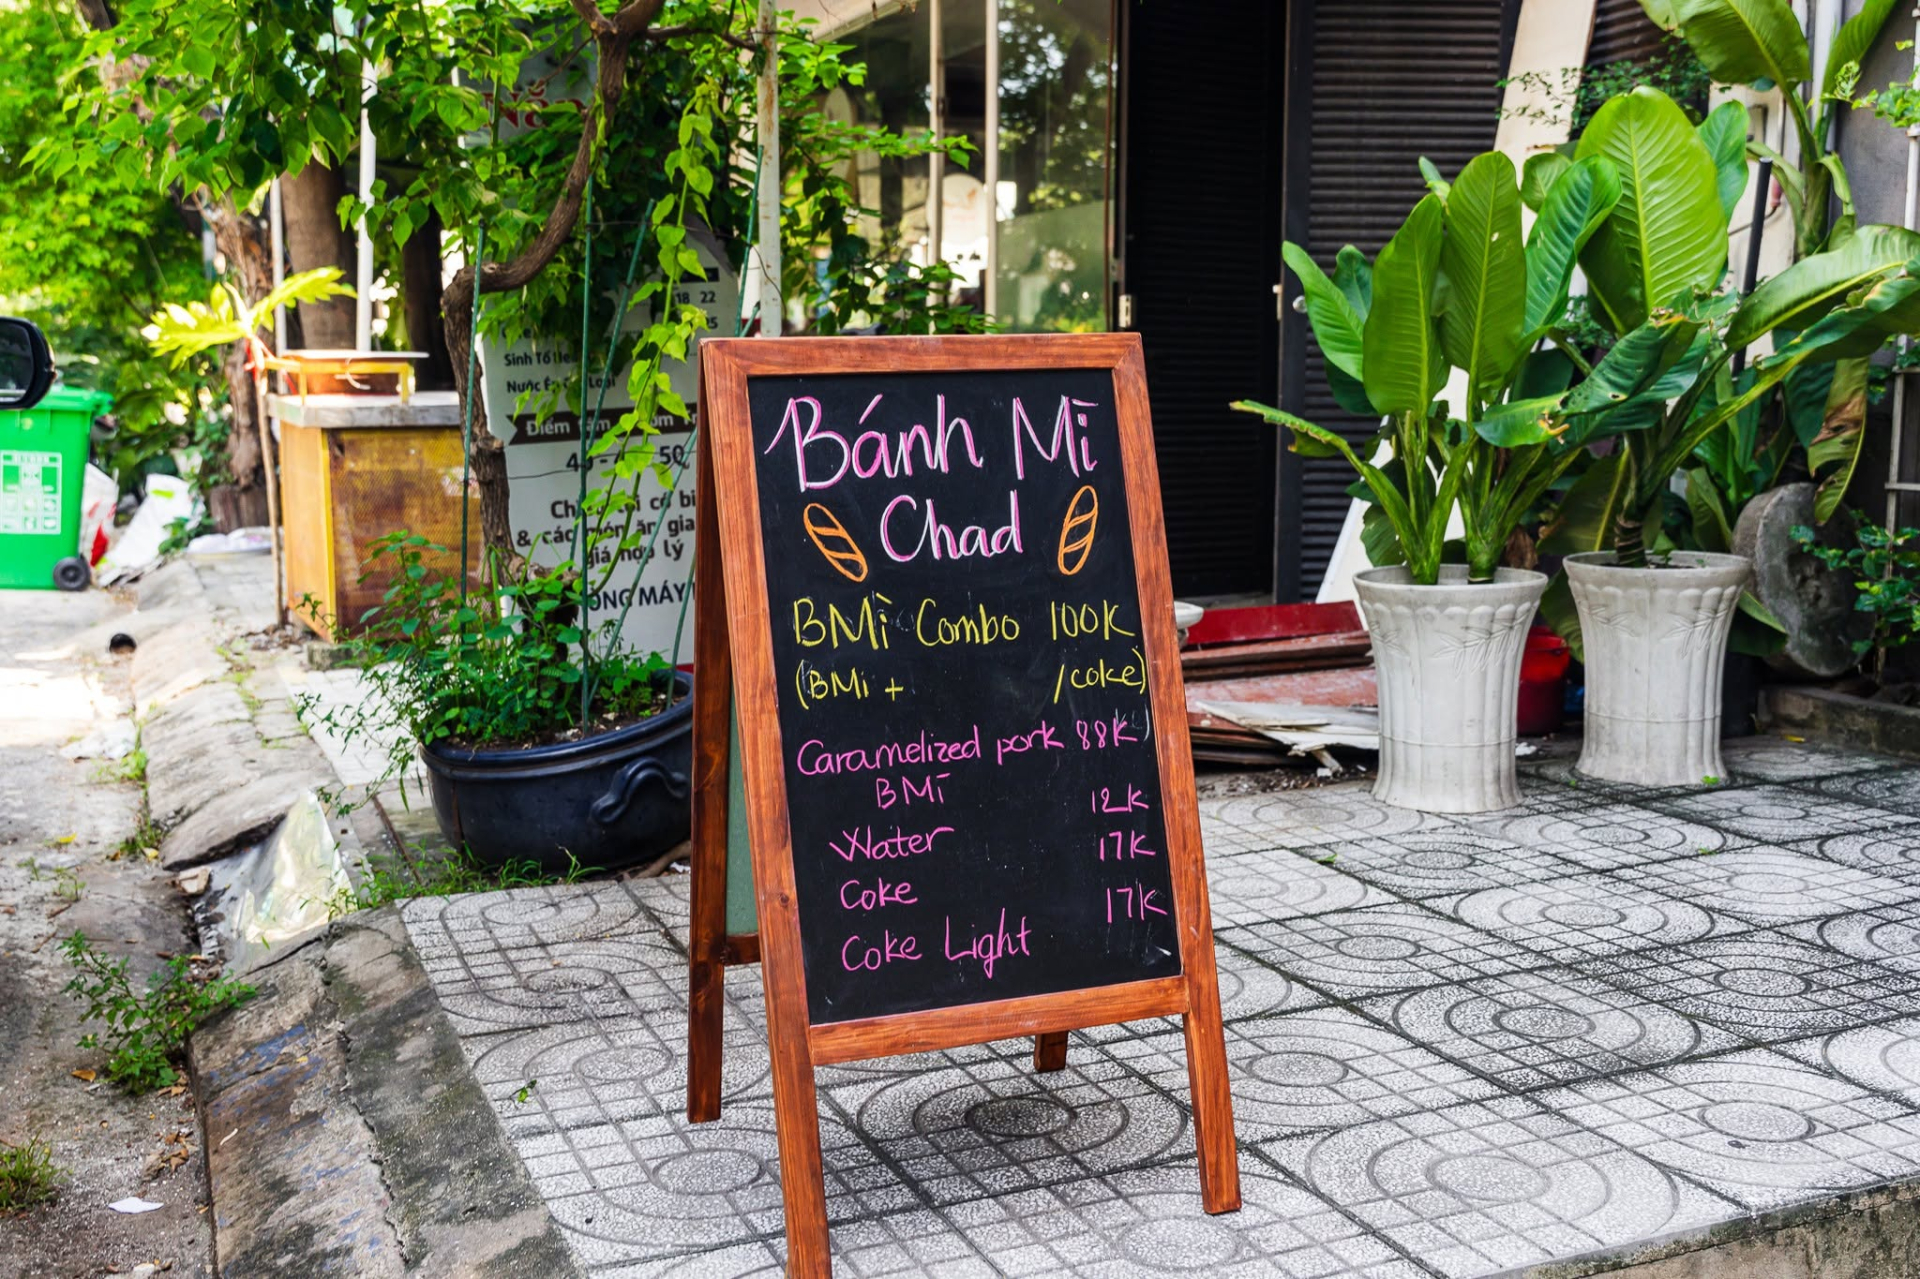 Bánh Mì
Chad
BMì Combo 100K
(BMi + /coke)
Caramelized pork 88K
BMì
12K
Water
17K
Coke
17K
Coke Light
18 22
Sinh Tố
Nước Ép Loại
Điểm
50
& các món ăn
giá hợp lý
MÁY